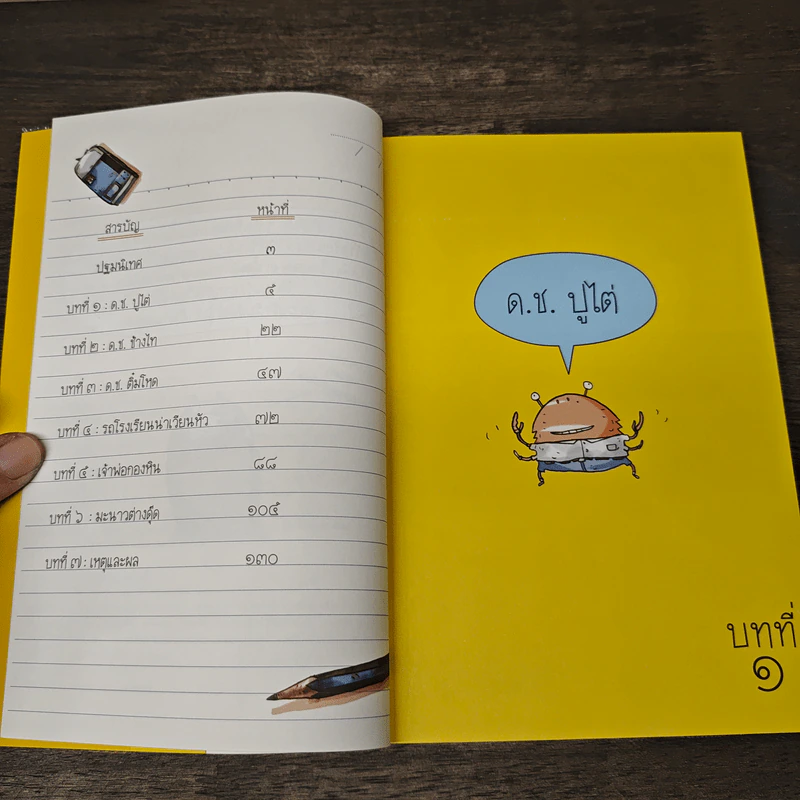 สารบัญ หน้าที่
ปฐมนิเทศ ๓
บทที่ ๑ : ด.ช. ปูไต่ ๕
บทที่ ๒ : ด.ช. ช้างไท ๒๒
บทที่ ๓ : ด.ช. ติ๋มโหด ๔๗
บทที่ ๔ : รถโรงเรียนน่าเวียนหัว ๗๒
บทที่ ๕ : เจ้าพ่อกองหิน ๘๘
บทที่ ๖ : มะนาวต่างดุ๊ด ๑๐๕
บทที่ ๗ : เหตุและผล ๑๓๐
ด.ช. ปูไต่
บทที่
๑